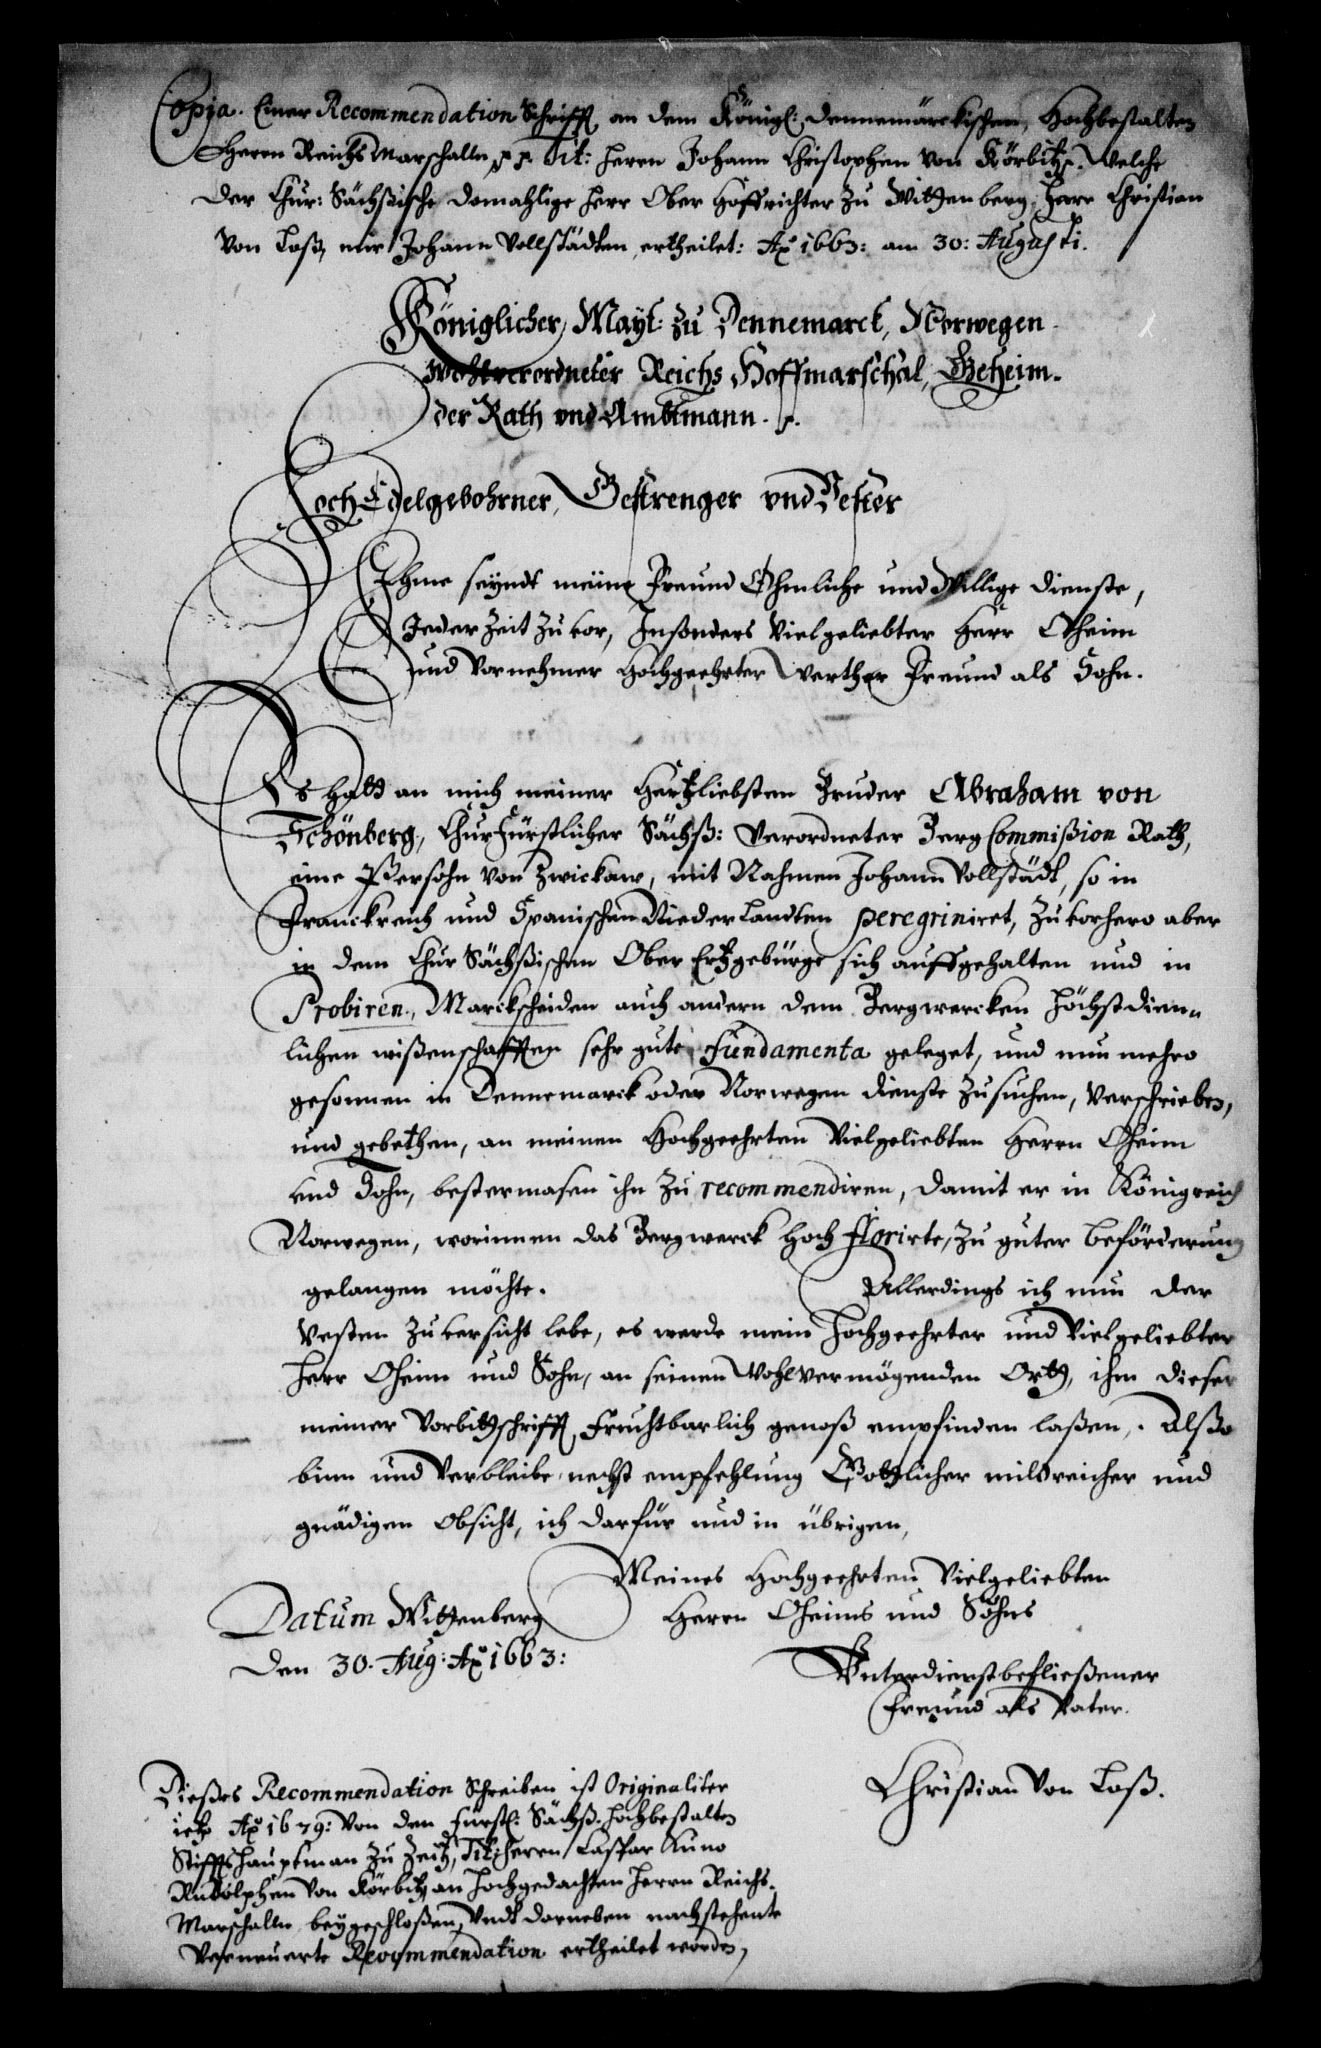 Copja. Einer Recommendation Schrifft an dem Königl: Dennemärckischen, Hochbestalten
Herrn Reichs Marschalln p p. Tit: Herrn Johann Christophen von Körbitz p. Welche
der Chur: Sächßische damahlige Herr Ober Hoffrichter zu Wittenberg, Herr Christian
von Loß, mir Johann Vollstädten, ertheilet: Ao 1663: am 30: Augusti.
Königlicher Mayt: zu Dennemarck, Norwegen
Wohlverordneter Reichs Hoffmarschal, Geheim-
der Rath vnd Ambtmann. p.
Hoch Edelgebohrner, Gestrenger vnd Vester
Ihme seyndt meine Freund Öhmliche und Willige dienste,
Jeder Zeit zuvor, Insonders Vielgeliebter Herr Oheim
und Vornehmer Hochgeehrter Werther Freund als Sohn.
Es hatt an mich meiner Hertzliebsten Bruder Abraham von
Schönberg, ChurFürstlicher Sächß: Verordneter Berg Commißion Rath,
eine Persohn von Zwickaw, mit Nahmen Johann Vollstädt, so in
Franckreich und Spanischen Niederlandten peregriniret, zuvorhero aber
in dem Chur Sächßischen Ober Ertzgebürge sich auffgehalten und in
Probiren, Marckscheiden auch andern dem Bergwercken höchstdien-
lichen wißenschafften sehr gute fundamenta geleget, und nun mehro
gesonnen in Dennemarck oder Norwegen dienste zusuchen, Verschrieben,
und gebethen, an meinen Hochgeehrten Vielgeliebten Herrn Oheim
und Sohn, bestermasen ihn zu recommendiren, damit er in Königreich
Norwegen, worinnen das Bergwerck hoch florirte, zu guter beförderung
gelangen möchte. Allerdings ich nun der
Vesten zuversicht lebe, es werde mein hochgeehrter und Vielgeliebter
Herr Oheim und Sohn, an seinen Wohlvermögenden Orth, ihn dieser
meiner Vorbittschrifft Fruchtbarlich genoß empfinden laßen, Alßo
binn und Verbleibe nechst empfehlung Göttlicher mildreicher und
gnädigen Obsicht, ich darfür und in übrigen,
Meines Hochgeehrten Vielgeliebten
Herrn Oheims und Sohns
Datum Wittenberg
den 30. Aug: Ao 1663:
Unterdienstbefließener
Freund als Vater.
Christian von Loß.
Dießes Recommendation Schreiben ist Originaliter
ietzo Ao 1679: Von den Fürstl: Sächß. Hochbestalten
Stifftshauptman zu Zeitz, Tit: Herrn Caspar Kuno
Rudolphen von Körbitz an Hochgedachten Herrn Reichs-
Marschalln beygeschloßen, Undt darneben nachstehente
Verneuerte Recommendation ertheilet worden,